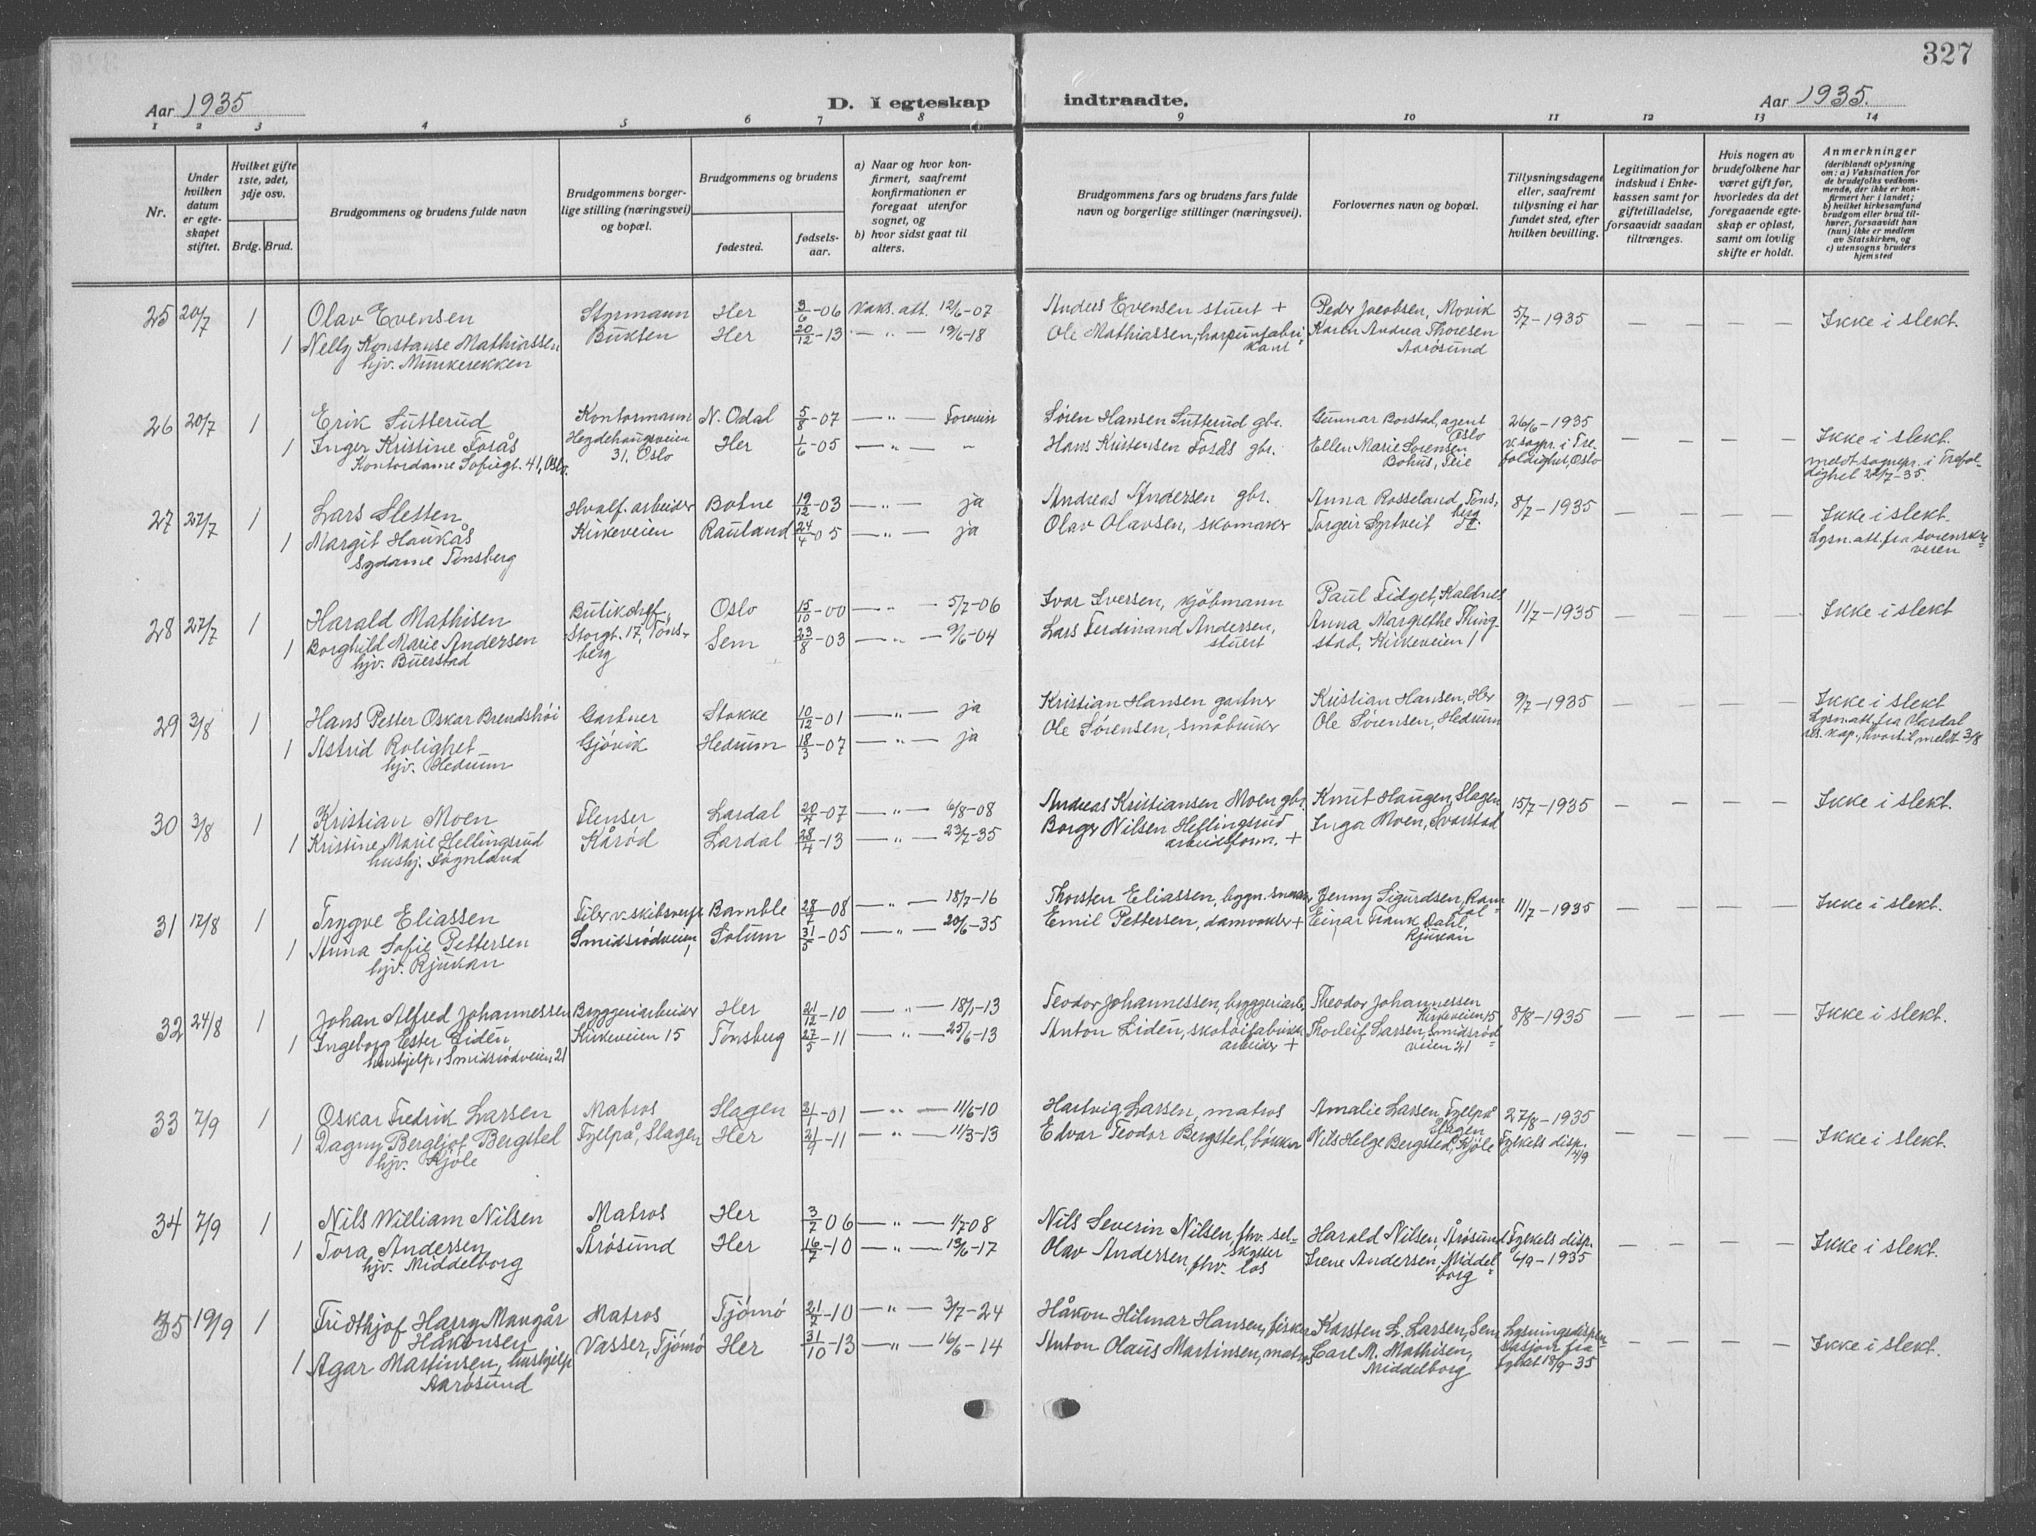 327
Aar 1935
D. I egteskap indtraadte.
Aar 1935.
1 2 3 4 5 6 7 8 9 10 11 12 13 14
Nr.
Under hvilken datum er egteskapet stiftet.
Hvilket gifte 1ste, 2det, 3dje osv.
Brdg. Brud.
Brudgommens og brudens fulde navn
Brudgommens borgerlige stilling (næringsvei) og bopæl.
Brudgommens og brudens
fødested.
fødselsaar.
a) Naar og hvor konfirmert, saafremt konfirmationen er foregaat utenfor sognet, og
b) hvor sidst gaat til alters.
Brudgommens fars og brudens fars fulde navn og borgerlige stillinger (næringsvei).
Forlovernes navn og bopæl.
Tillysningsdagene eller, saafremt tillysning ei har fundet sted, efter hvilken bevilling.
Legitimation for indskud i Enkekassen samt for giftetilladelse, forsaavidt saadan tiltrænges.
Hvis nogen av brudefolkene har været gift før, hvorledes da det foregaaende egteskap er opløst, samt om lovlig skifte er holdt.
Anmerkninger
(deriblandt oplysning om: a) Vaksination for de brudefolks vedkommende, der ikke er konfirmert her i landet;
b) hvilket kirkesamfund brudgom eller brud tilhører, forsaavidt han (hun) ikke er medlem av Statskirken, og
c) utensogns bruders hjemsted
25 20/7 1 Olav Evensen Styrmann Her 3/6-06 Vaks. att. 12/6-07 Anders Evensen stuert + Peder Jacobsen, Movik 5/7-1935 — — — Ikke i slekt.
1 Nelly Konstanse Mathiassen Bukten Her 20/12-13 — " — 19/6-18 Ole Mathiassen, harpunfabri= Karen Andrea Thoresen
hjv. Munkerekken kant Aarøsund
26 20/7 1 Erik Sutterud Kontormann N. Odal 5/8-07 — " — Søren Hansen Sutterud gbr. Gunnar Borstad, agent 26/6-1935
Oslo
1 Inger Kristine Fosås Hegdehaugsveien Her 1/6-05 — " — Hans Kristensen Fosås gbr. Ellen Marie Sørensen v. sogpr. i Tre= — — — Ikke i slekt.
Kontordame Sofiegt. 41, Oslo. 31, Oslo Bohus, Teie foldighet, Oslo meldt sognepr. i Trefol=
dighet 22/7-35.
27 27/7 1 Lars Sletten Hvalf. arbeider Botne 19/12-03 — " — ja Andreas Andersen gbr. Anna Rosseland, Tøns= 8/7-1935 — — — Ikke i slekt.
berg
1 Margit Haukås Kirkeveien Rauland 24/4-05 — " — ja Olav Olavsen, skomaker Torgeir Syrtveit Lysn. att. fra sorenskri=
Sydame Tønsberg veren
28 27/7 1 Harald Mathisen Butikchef, Oslo 15/10-00 — " — 5/7-06 Ivar Iversen, kjøbmann Paul Fidget, Kaldnes 11/7-1935 — — — Ikke i slekt
1 Borghild Marie Andersen Storgt. 17, Tøns= Sem 23/8-03 — " — 9/6-04 Lars Ferdinand Andersen, Anna Margrethe Thing=
hjv. Buerstad berg stuert stad, Kirkeveien 1
29 3/8 1 Hans Petter Oskar Brendshøi Gartner Stokke 10/12-01 — " — ja Kristian Hansen gartner Kristian Hansen, Her 9/7-1935 — — — Ikke i slekt
1 Astrid Rolighet Gjøvik Hedrum 18/3-07 — " — ja Ole Sørensen, småbruker Ole Sørensen, Hedrum Lysn. att. fra Lardal
hjv. Hedrum res. kap., hvortil meldt 3/8
30 3/8 1 Kristian Moen Flenser Lardal 20/4-07 — " — 6/8-08 Andreas Kristiansen Moen gbr. Knut Haugen, Slagen 15/7-1935 — — — Ikke i slekt.
1 Kristine Marie Hellingsrud Kårød Lardal 28/4-13 — " — 23/7-35 Borger Nilsen Hellingsrud Inga Moen, Svarstad
hushj. Fögnland arbeidsform. +
31 12/8 1 Trygve Eliassen Filer v. skibsverft Bamble 28/7-08 — " — 18/7-16 Thorsten Eliassen, bygn. snekker Jenny Sigurdsen, Ram= 11/7-1935 — — — Ikke i slekt.
dal
1 Anna Sofie Pettersen Smidsrødveien, Solum 31/5-05 — " — 20/6-35 Emil Pettersen, damvokter + Einar Frank Dahl,
hjv. Rjukan Rjukan
32 24/8 1 Johan Alfred Johannessen Bryggeriarbeider Her 21/12-10 — " — 18/1-13 Teodor Johannessen, bryggeriarb. Theodor Johannessen 8/8-1935 — — — Ikke i slekt.
Kirkeveien 15
1 Ingeborg Ester Liden Kirkeveien 15 Tønsberg 27/5-11 — " — 25/6-13 Anton Liden, skotøifabrikk Thorleif Larsen, Smidsrød=
hushjelp, Smidsrødveien, 21 arbeider + veien 21
33 7/9 1 Oskar Fredrik Larsen Matros Slagen 21/1-01 — " — 11/6-10 Hartvig Larsen, matros Amalie Larsen, Fyllpå 27/8-1935
Slagen
1 Dagny Bergljot Bergsted Fyllpå, Slagen Her 21/1-11 — " — 11/3-13 Edvar Teodor Bergsted, bøkker Nils Helge Bergsted, Kjøle Fylkets disp. — — — Ikke i slekt.
hjv. Kjøle 4/9
34 7/9 1 Nils William Nilsen Matros Her 3/7 06 — " — 1/7 08 Nils Severin Nilsen, fhv. sel= Harald Nilsen, Årøsund Fylkets disp.
skytter
1 Tora Andersen Årøsund Her 16/7-10 — " — 13/6-17 Olav Andersen, fhv. los Irene Andersen, Middel= 6/9-1935 — — — Ikke i slekt.
hjv. Middelborg borg
35 19/9 1 Fridthjof Harry Mangår Matros Tjømø 21/7-10 — " — 3/7-24 Håkon Hilmar Hansen, fisker Karsten L. Larsen, Sem Lysningsdispen=
Håkonsen
1 Agar Martinsen, hushjelp Vasser, Tjømø Her 31/10-13 — " — 16/6-14 Anton Olaus Martinsen, matros Carl M. Mathisen, sasjon fra — — — Ikke i slekt.
Aarøsund Middelborg fylket 18/9-35